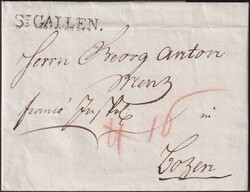 ST GALLEN.
Herrn Georg Anton
Menz
franco
in
16
Bozen